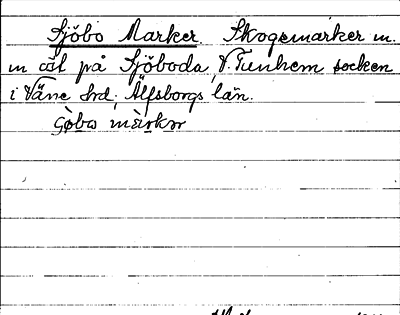 Sjöbo Marker. Skogsmarker m.
m öst på Sjöboda, V. Tunhem socken
i Väne hrd, Älfsborgs län.
Gøba màrkar